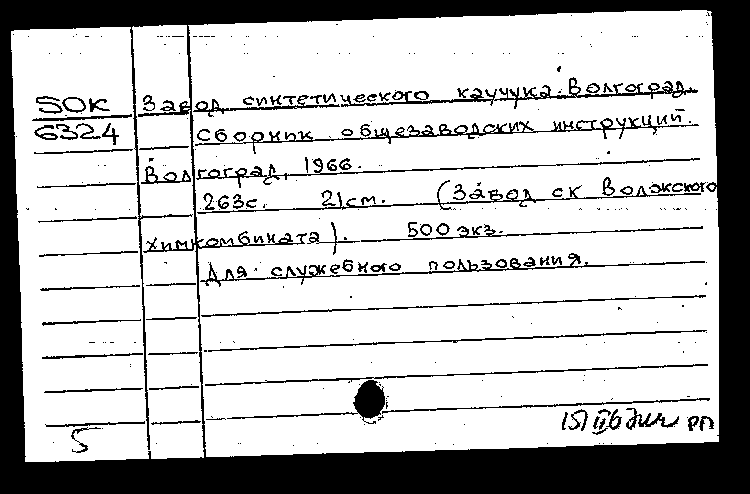 SOK Завод синтетического каучука. Волгоград.
6324 Сборник общезаводских инструкций.
Волгоград, 1966.
263с. 21см. (Завод СК Волжского
химкомбината). 500 экз.
Для служебного пользования.
РП
5